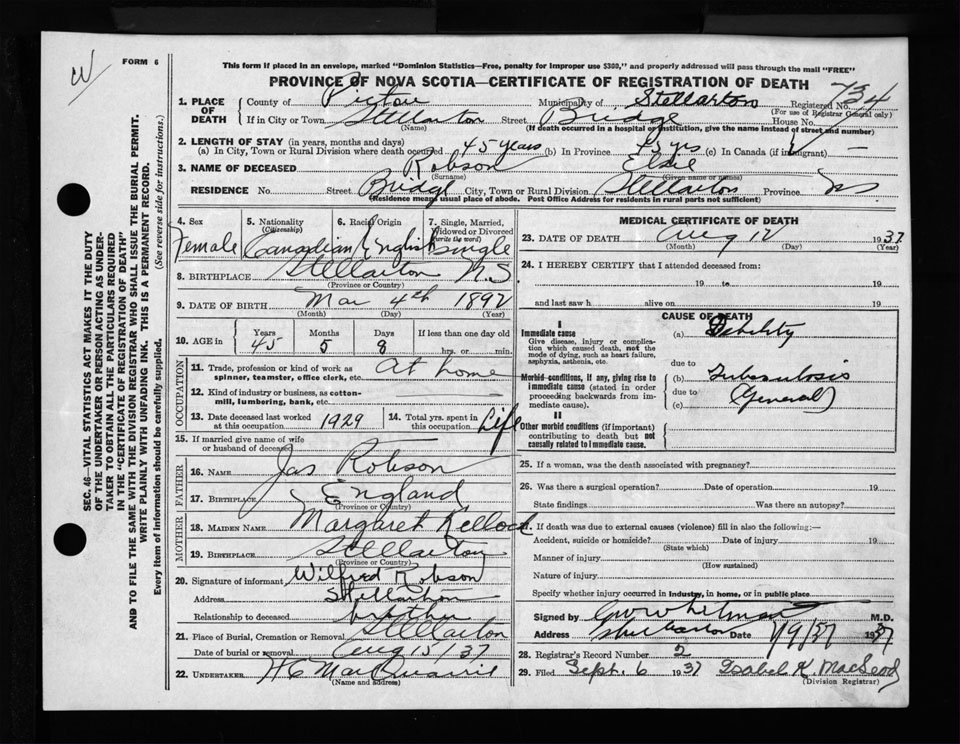 W
FORM 6
This form if placed in an envelope, marked "Dominion Statistics—Free, penalty for improper use $300," and properly addressed will pass through the mail "FREE"
PROVINCE OF NOVA SCOTIA—CERTIFICATE OF REGISTRATION OF DEATH
SEC. 46—VITAL STATISTICS ACT MAKES IT THE DUTY
OF THE UNDERTAKER OR PERSON ACTING AS UNDER-
TAKER TO OBTAIN ALL THE PARTICULARS REQUIRED
IN THE "CERTIFICATE OF REGISTRATION OF DEATH"
AND TO FILE THE SAME WITH THE DIVISION REGISTRAR WHO SHALL ISSUE THE BURIAL PERMIT.
WRITE PLAINLY WITH UNFADING INK. THIS IS A PERMANENT RECORD.
Every item of information should be carefully supplied. (See reverse side for instructions.)
1. PLACE OF DEATH County of Pictou Municipality of Stellarton Registered No. 734
(For use of Registrar General only)
If in City or Town Stellarton Street Bridge House No.
(Name) (If death occurred in a hospital or institution, give the name instead of street and number)
2. LENGTH OF STAY (in years, months and days)
(a) In City, Town or Rural Division where death occurred 45 years (b) In Province 45 yrs (c) In Canada (if immigrant) —
3. NAME OF DECEASED Robson Elsie
(Surname) (Given name or names)
RESIDENCE No. Street Bridge City, Town or Rural Division Stellarton Province NS
(Residence means usual place of abode. Post Office Address for residents in rural parts not sufficient)
4. Sex 5. Nationality (Citizenship) 6. Racial Origin 7. Single, Married, Widowed or Divorced (Write the word)
Female Canadian English Single
8. BIRTHPLACE Stellarton N.S
(Province or Country)
9. DATE OF BIRTH Mar 4th 1892
(Month) (Day) (Year)
10. AGE in Years Months Days If less than one day old
45 5 8 hr. or min.
OCCUPATION
11. Trade, profession or kind of work as spinner, teamster, office clerk, etc. At home
12. Kind of industry or business, as cotton-mill, lumbering, bank, etc.
13. Date deceased last worked at this occupation 1929 14. Total yrs. spent in this occupation Life
15. If married give name of wife or husband of deceased
FATHER
16. NAME Jas Robson
17. BIRTHPLACE England
(Province or Country)
MOTHER
18. MAIDEN NAME Margaret Kelloch
19. BIRTHPLACE Stellarton
(Province or Country)
20. Signature of informant Wilfred Robson
Address Stellarton
Relationship to deceased brother
21. Place of Burial, Cremation or Removal Stellarton
Date of burial or removal Aug 15/37
22. UNDERTAKER H C MacQuarrie
(Name and address)
MEDICAL CERTIFICATE OF DEATH
23. DATE OF DEATH Aug 12 1937
(Month) (Day) (Year)
24. I HEREBY CERTIFY that I attended deceased from:
19 to 19
and last saw h alive on 19
CAUSE OF DEATH
I
Immediate cause (a) Debility
Give disease, injury or complication which caused death, not the mode of dying, such as heart failure, asphyxia, asthenia, etc.
due to
Morbid conditions, if any, giving rise to immediate cause (stated in order proceeding backwards from immediate cause). (b) Tuberculosis
due to
(c) (General)
II
Other morbid conditions (if important) contributing to death but not causally related to immediate cause.
25. If a woman, was the death associated with pregnancy?
26. Was there a surgical operation? Date of operation 19
State findings Was there an autopsy?
27. If death was due to external causes (violence) fill in also the following:—
Accident, suicide or homicide? Date of injury 19
(State which)
Manner of injury
(How sustained)
Nature of injury
Specify whether injury occurred in Industry, in home, or in public place
Signed by M.D.
Address Stellarton Date 1/9/37 1937
28. Registrar's Record Number 2
29. Filed Sept. 6 1937 Isabel K. MacLeod
(Division Registrar)